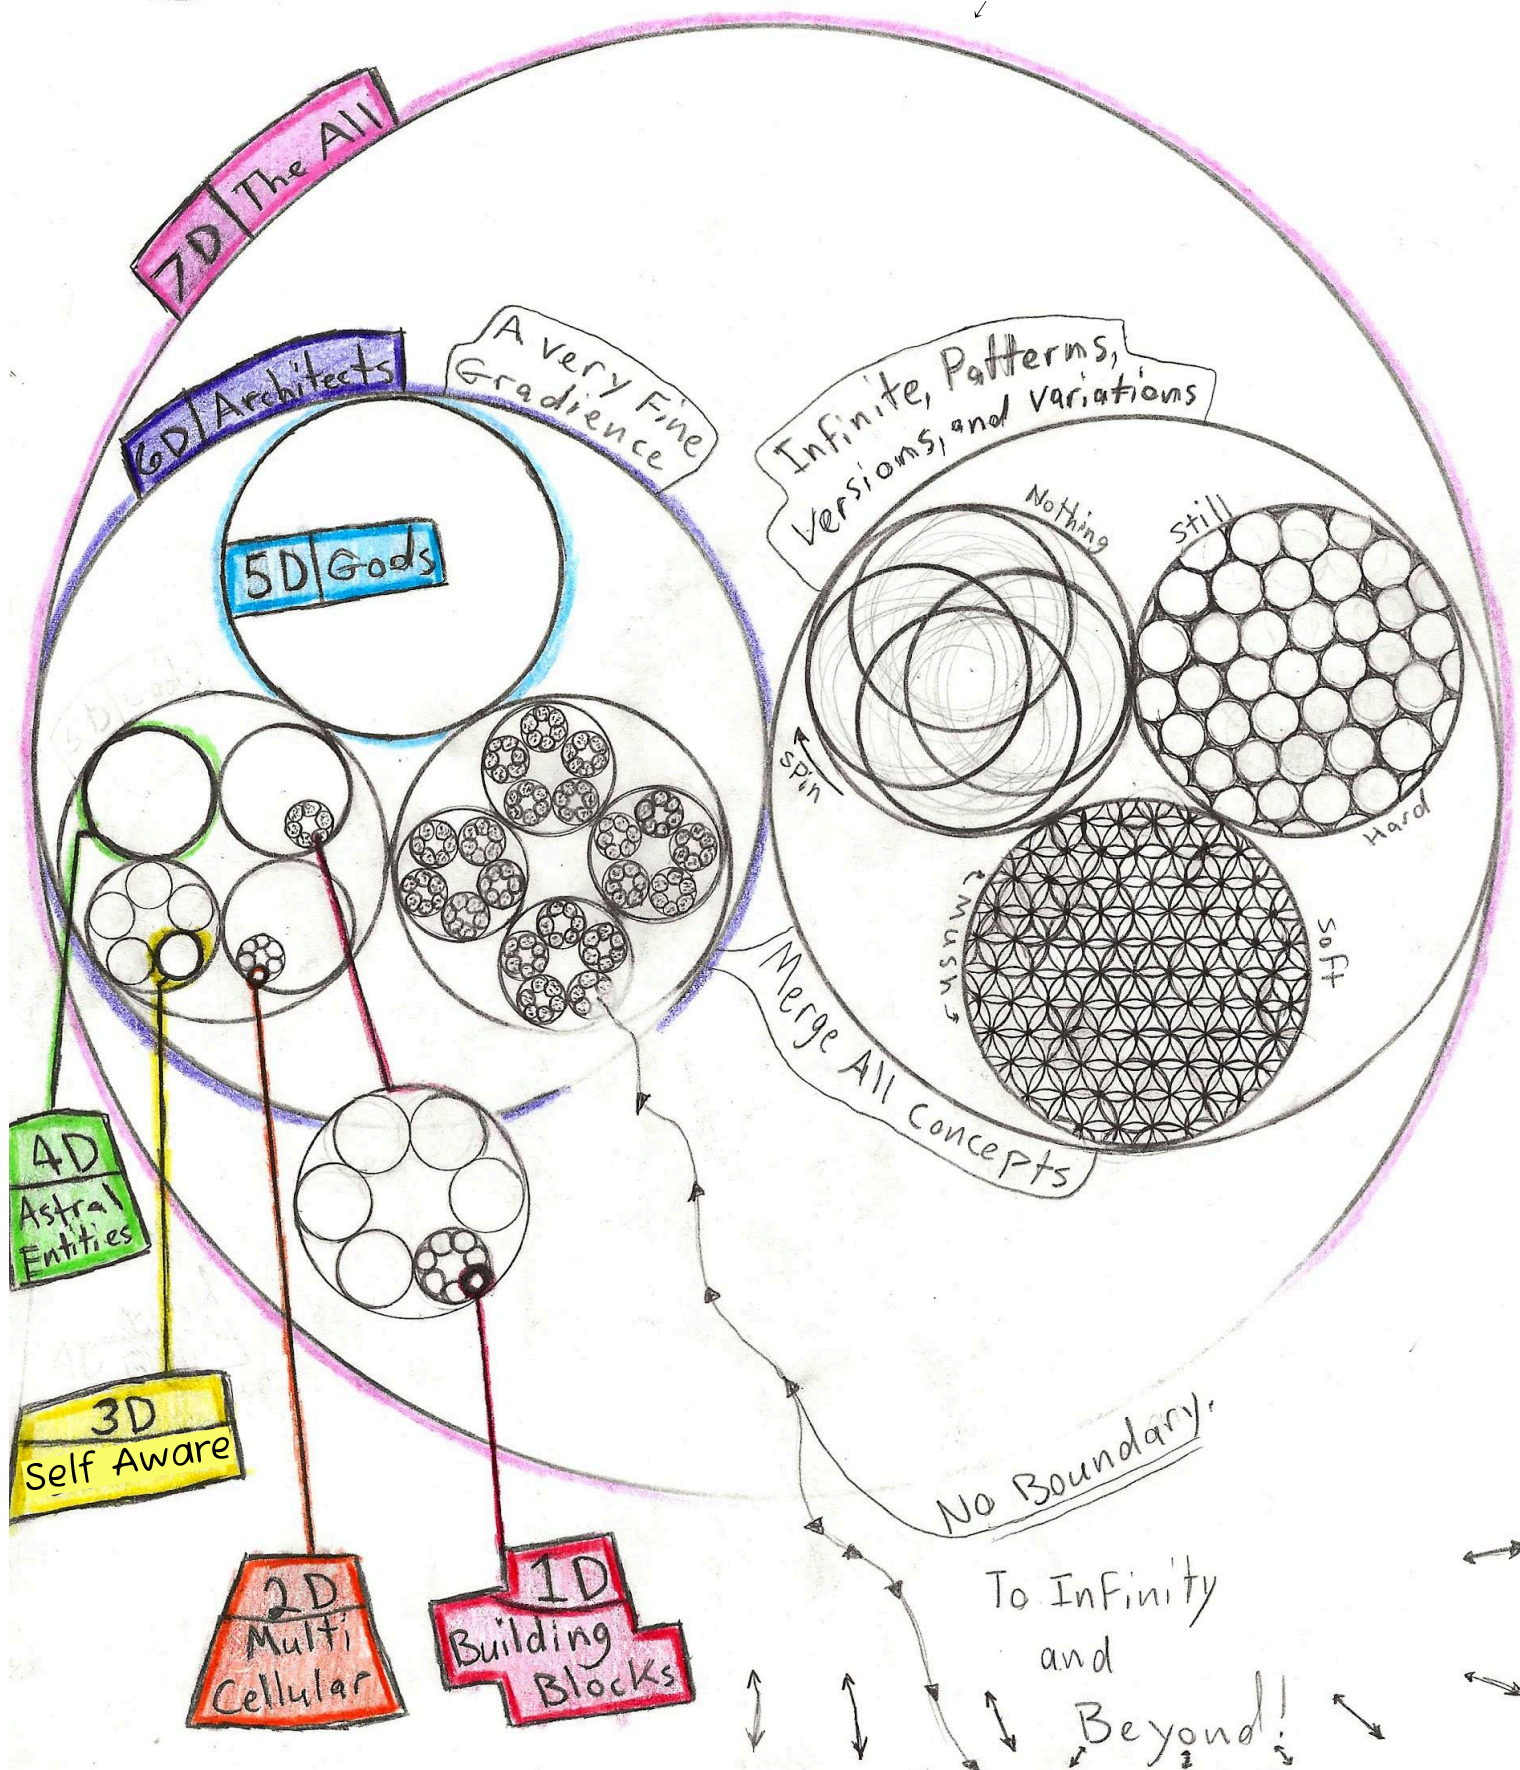 7D The All
6D Architects
A very Fine
Gradience
Infinite, Patterms,
versioms, and variations
5D Gods
Nothing
Still
spin
Hard
mush
Soft
Merge All Concepts
4D
Astral
Entities
3D
Self Aware
2D
Multi
Cellular
1D
Building
Blocks
No Boundary.
To Infinity
and
Beyond!